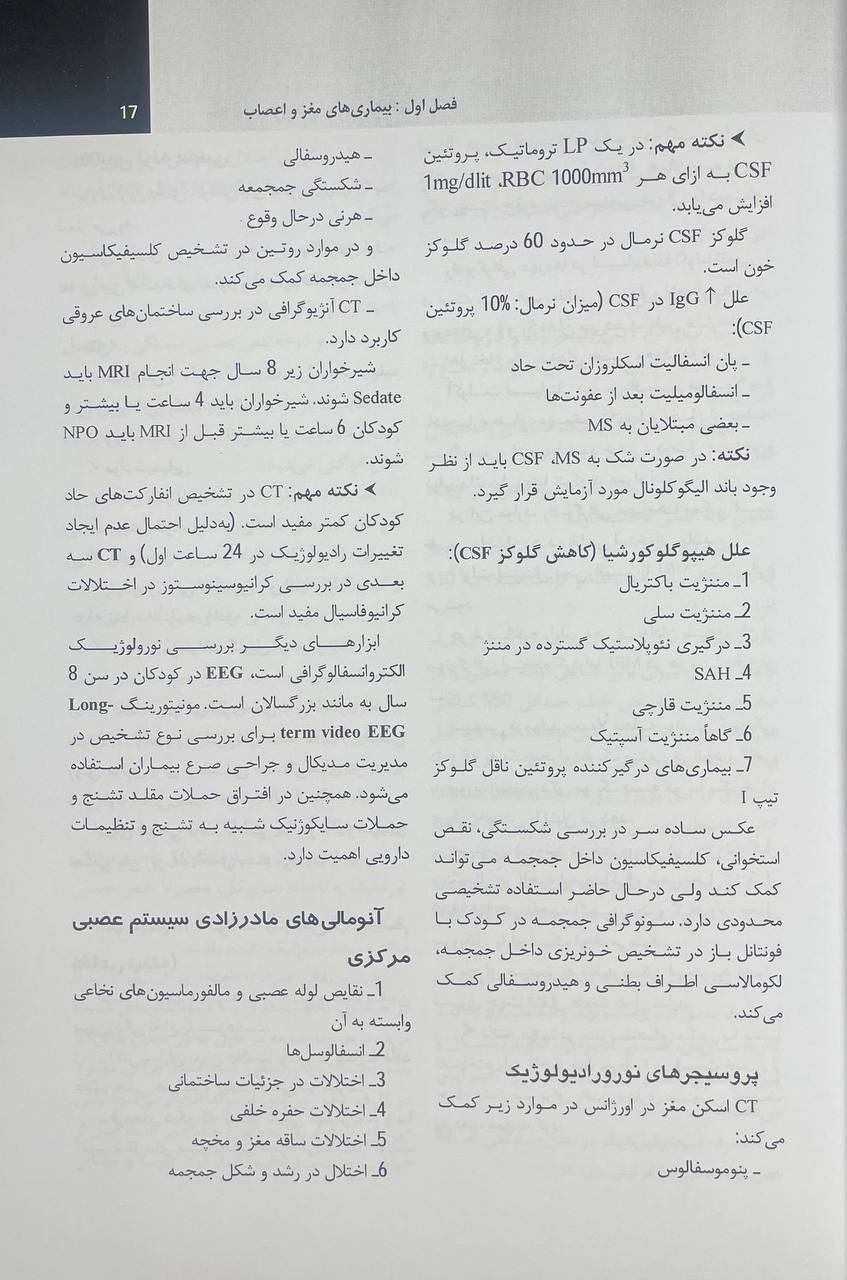 فصل اول : بیماری‌های مغز و اعصاب
17
➤ نکته مهم: در یک LP تروماتیک، پروتئین
CSF به ازای هر 1mg/dlit ،RBC 1000mm³
افزایش می‌یابد.
گلوکز CSF نرمال در حدود 60 درصد گلوکز
خون است.
علل ↑ IgG در CSF (میزان نرمال: 10% پروتئین
CSF):
ـ پان انسفالیت اسکلروزان تحت حاد
ـ انسفالومیلیت بعد از عفونت‌ها
ـ بعضی مبتلایان به MS
نکته: در صورت شک به CSF ،MS باید از نظر
وجود باند الیگوکلونال مورد آزمایش قرار گیرد.
علل هیپوگلوکورشیا (کاهش گلوکز CSF):
1ـ مننژیت باکتریال
2ـ مننژیت سلی
3ـ درگیری نئوپلاستیک گسترده در مننژ
4ـ SAH
5ـ مننژیت قارچی
6ـ گاهاً مننژیت آسپتیک
7ـ بیماری‌های درگیرکننده پروتئین ناقل گلوکز
تیپ I
عکس ساده سر در بررسی شکستگی، نقص
استخوانی، کلسیفیکاسیون داخل جمجمه می‌تواند
کمک کند ولی درحال حاضر استفاده تشخیصی
محدودی دارد. سونوگرافی جمجمه در کودک با
فونتانل باز در تشخیص خونریزی داخل جمجمه،
لکومالاسی اطراف بطنی و هیدروسفالی کمک
می‌کند.
پروسیجرهای نورورادیولوژیک
CT اسکن مغز در اورژانس در موارد زیر کمک
می‌کند:
ـ پنوموسفالوس
ـ هیدروسفالی
ـ شکستگی جمجمعه
ـ هرنی درحال وقوع
و در موارد روتین در تشخیص کلسیفیکاسیون
داخل جمجمه کمک می‌کند.
ـ CT آنژیوگرافی در بررسی ساختمان‌های عروقی
کاربرد دارد.
شیرخواران زیر 8 سال جهت انجام MRI باید
Sedate شوند. شیرخواران باید 4 ساعت یا بیشتر و
کودکان 6 ساعت یا بیشتر قبل از MRI باید NPO
شوند.
➤ نکته مهم: CT در تشخیص انفارکت‌های حاد
کودکان کمتر مفید است. (به‌دلیل احتمال عدم ایجاد
تغییرات رادیولوژیک در 24 ساعت اول) و CT سه
بعدی در بررسی کرانیوسینوستوز در اختلالات
کرانیوفاسیال مفید است.
ابزارهای دیگر بررسی نورولوژیک
الکتروانسفالوگرافی است، EEG در کودکان در سن 8
سال به مانند بزرگسالان است. مونیتورینگ Long-
term video EEG برای بررسی نوع تشخیص در
مدیریت مدیکال و جراحی صرع بیماران استفاده
می‌شود. همچنین در افتراق حملات مقلد تشنج و
حملات سایکوژنیک شبیه به تشنج و تنظیمات
دارویی اهمیت دارد.
آنومالی‌های مادرزادی سیستم عصبی
مرکزی
1ـ نقایص لوله عصبی و مالفورماسیون‌های نخاعی
وابسته به آن
2ـ انسفالوسل‌ها
3ـ اختلالات در جزئیات ساختمانی
4ـ اختلالات حفره خلفی
5ـ اختلالات ساقه مغز و مخچه
6ـ اختلال در رشد و شکل جمجمه